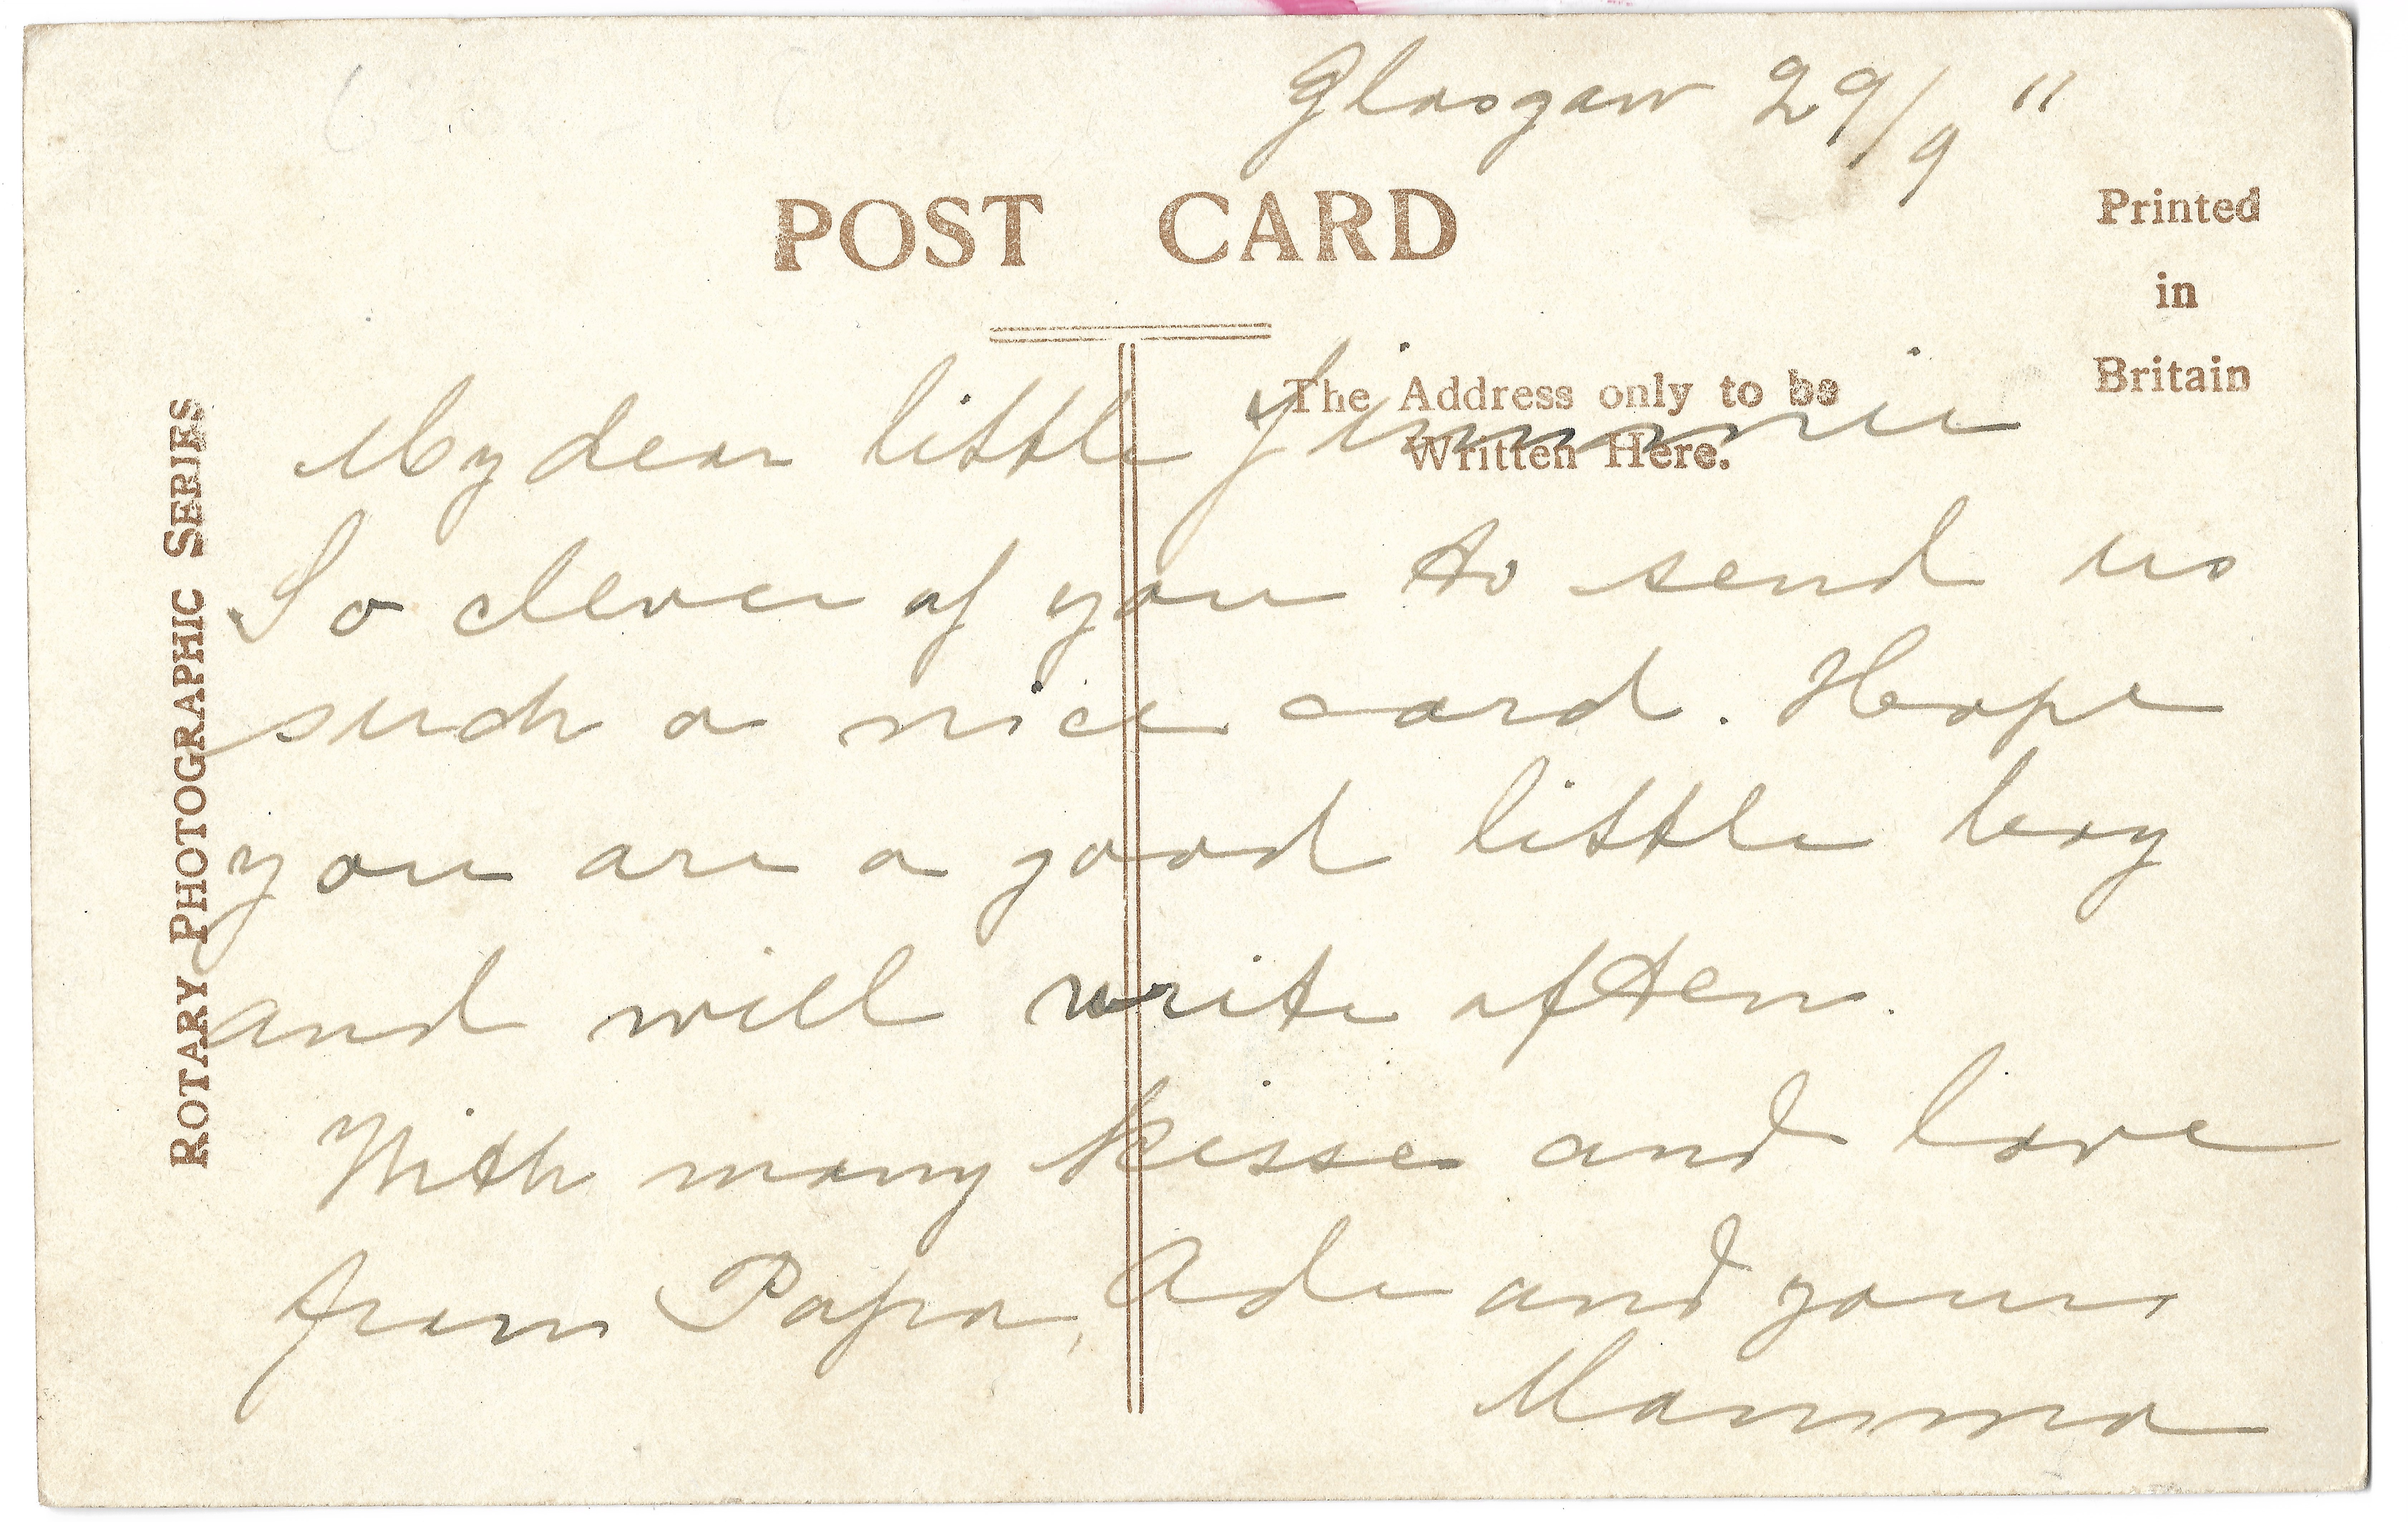 Glasgow 29/9 11
POST CARD
Printed
in
Britain
The Address only to be
Written Here.
ROTARY PHOTOGRAPHIC SERIES
My dear little Jimmie
So clever of you to send us
such a nice card. Hope
you are a good little boy
and will write often.
With many kisses and love
from Papa, Ade and yours
Mamma